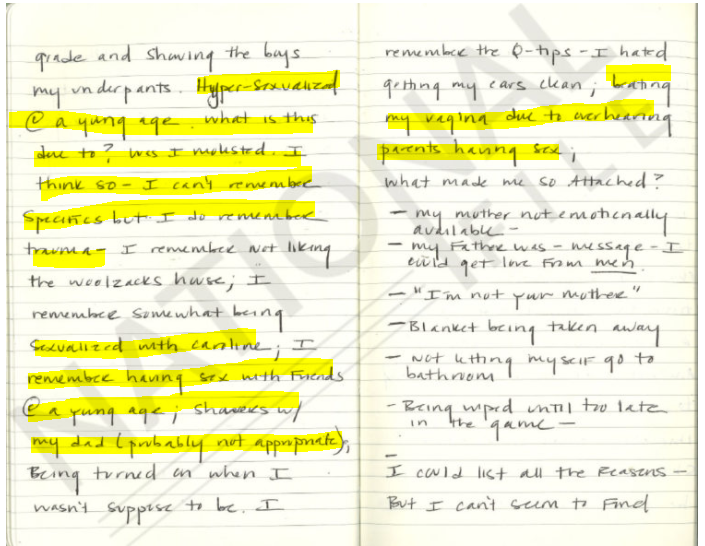 grade and showing the boys
my underpants. Hyper-sexualized
@ a young age. What is this
due to? Was I molested. I
think so - I can't remember
specifics but I do remember
trauma - I remember not liking
the woolzacks house; I
remember somewhat being
sexualized with caroline; I
remember having sex with Friends
@ a young age; showers w/
my dad (probably not appropriate);
Being turned on when I
wasn't suppose to be. I
remember the Q-tips - I hated
getting my ears clean; beating
my vagina due to overhearing
parents having sex;
What made me so Attached?
- my mother not emotionally
available -
- my Father was - message - I
could get love From men.
- "I'm not your mother"
- Blanket being taken away
- Not letting myself go to
bathroom
- Being wiped until too late
in the game -
-
I could list all the Reasons -
But I can't seem to Find
NATIONAL
FILE